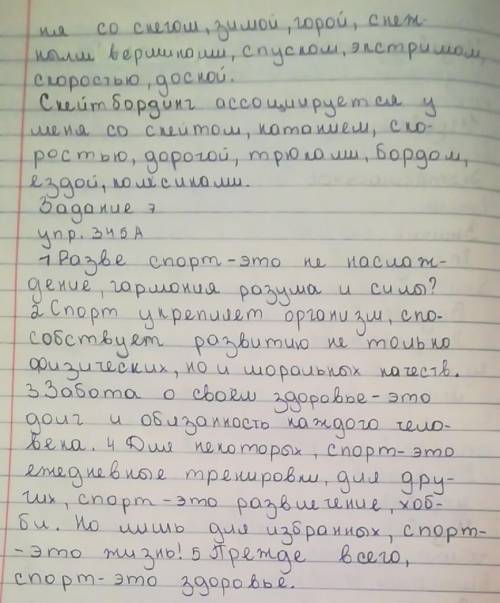 ня со снегом, зимой, горой, снеж-
ными вершинами, спуском, экстримом,
скоростью, доской.
Скейтбординг ассоциируется у
меня со скейтом, катанием, ско-
ростью, дорогой, трюками, бордом,
ездой, колёсиками.
Задание 7
упр. 345А
1 Разве спорт-это не наслаж-
дение, гармония разума и силы?
2 Спорт укрепляет организм, спо-
собствует развитию не только
физических, но и моральных качеств.
3 Забота о своём здоровье-это
долг и обязанность каждого чело-
века. 4 Для некоторых, спорт-это
ежедневные тренировки, для дру-
гих, спорт-это развлечение, хоб-
би. Но лишь для избранных, спорт-
-это жизнь! 5 Прежде всего,
спорт-это здоровье.